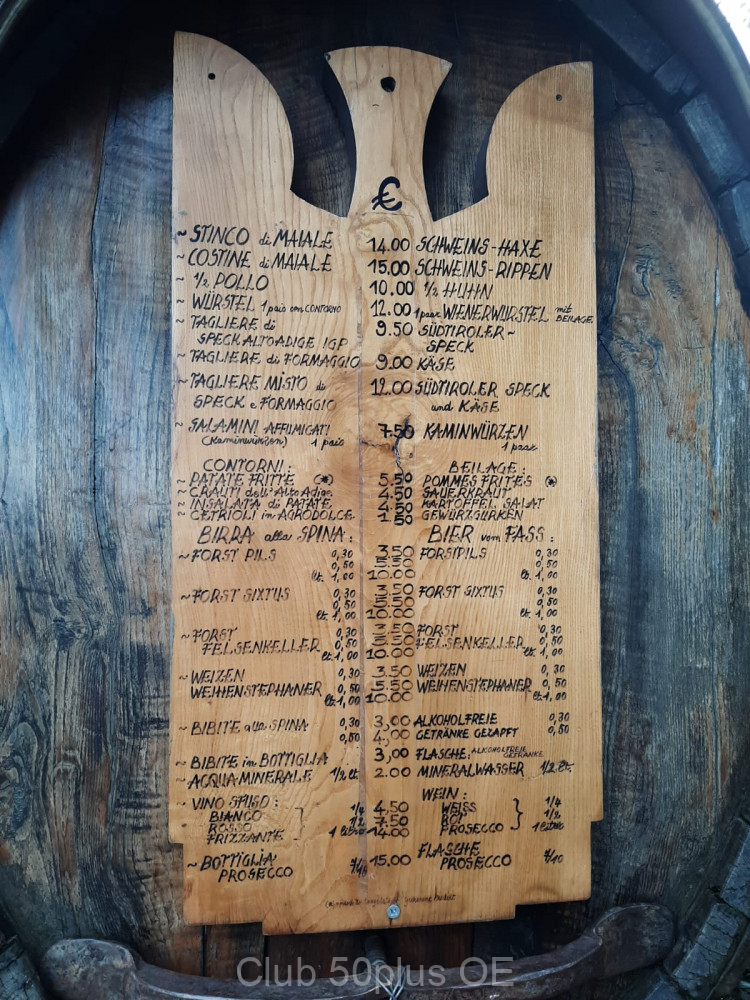 €
~ STINCO di MAIALE 14.00 SCHWEINS-HAXE
~ COSTINE di MAIALE 15.00 SCHWEINS-RIPPEN
~ 1/2 POLLO 10.00 1/2 HUHN
~ WÜRSTEL 1 paio con CONTORNO 12.00 1 paar WIENERWÜRSTEL mit BEILAGE
~ TAGLIERE di 9.50 SÜDTIROLER~
SPECK ALTOADIGE IGP SPECK
~ TAGLIERE di FORMAGGIO 9.00 KÄSE
~ TAGLIERE MISTO di 12.00 SÜDTIROLER SPECK
SPECK e FORMAGGIO und KÄSE
~ SALAMINI AFFUMICATI 7.50 KAMINWÜRZEN
(Kaminwürzen) 1 paio 1 paar
CONTORNI: BEILAGE:
~ PATATE FRITTE (*) 5.50 POMMES FRITES (*)
~ CRAUTI dell'Alto Adige 4.50 SAUERKRAUT
~ INSALATA di PATATE 4.50 KARTOFFEL SALAT
~ CETRIOLI in AGRODOLCE 1.50 GEWÜRZGURKEN
BIRRA alla SPINA: BIER vom FASS:
~ FORST PILS 0,30 3.50 FORSTPILS 0,30
0,50 5.50 0,50
lt. 1,00 10.00 lt. 1,00
~ FORST SIXTUS 0,30 3.50 FORST SIXTUS 0,30
0,50 5.50 0,50
lt. 1,00 10.00 lt. 1,00
~ FORST 0,30 3.50 FORST 0,30
FELSENKELLER 0,50 5.50 FELSENKELLER 0,50
lt. 1,00 10.00 lt. 1,00
~ WEIZEN 0,30 3.50 WEIZEN 0,30
WEIHENSTEPHANER 0,50 5.50 WEIHENSTEPHANER 0,50
lt. 1,00 10.00 lt. 1,00
~ BIBITE alla SPINA 0,30 3,00 ALKOHOLFREIE 0,30
0,50 4,00 GETRÄNKE GEZAPFT 0,50
~ BIBITE in BOTTIGLIA 3,00 FLASCHE: ALKOHOLFREIE GETRÄNKE
~ ACQUA MINERALE 1/2 lt. 2.00 MINERALWASSER 1/2 lt.
~ VINO SFUSO: WEIN:
BIANCO 1/4 4,50 WEISS 1/4
ROSSO 1/2 7.50 ROT 1/2
FRIZZANTE 1 litro 14.00 PROSECCO 1 liter
~ BOTTIGLIA 15.00 FLASCHE
PROSECCO PROSECCO 7/10
Club 50plus OE